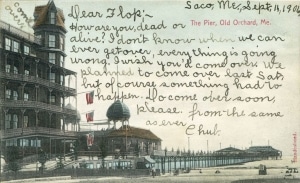 Saco, Me., Sept. 14, 190
Dear Flop;-
The Pier, Old Orchard, Me.
How are you, dead or
alive? I don't know when we can
ever get over, every thing is going
wrong. I wish you'd come over. We
planned to come over last Sat.
but of course something had to
happen. Do come over soon,
please. from the same
as ever
Chub.